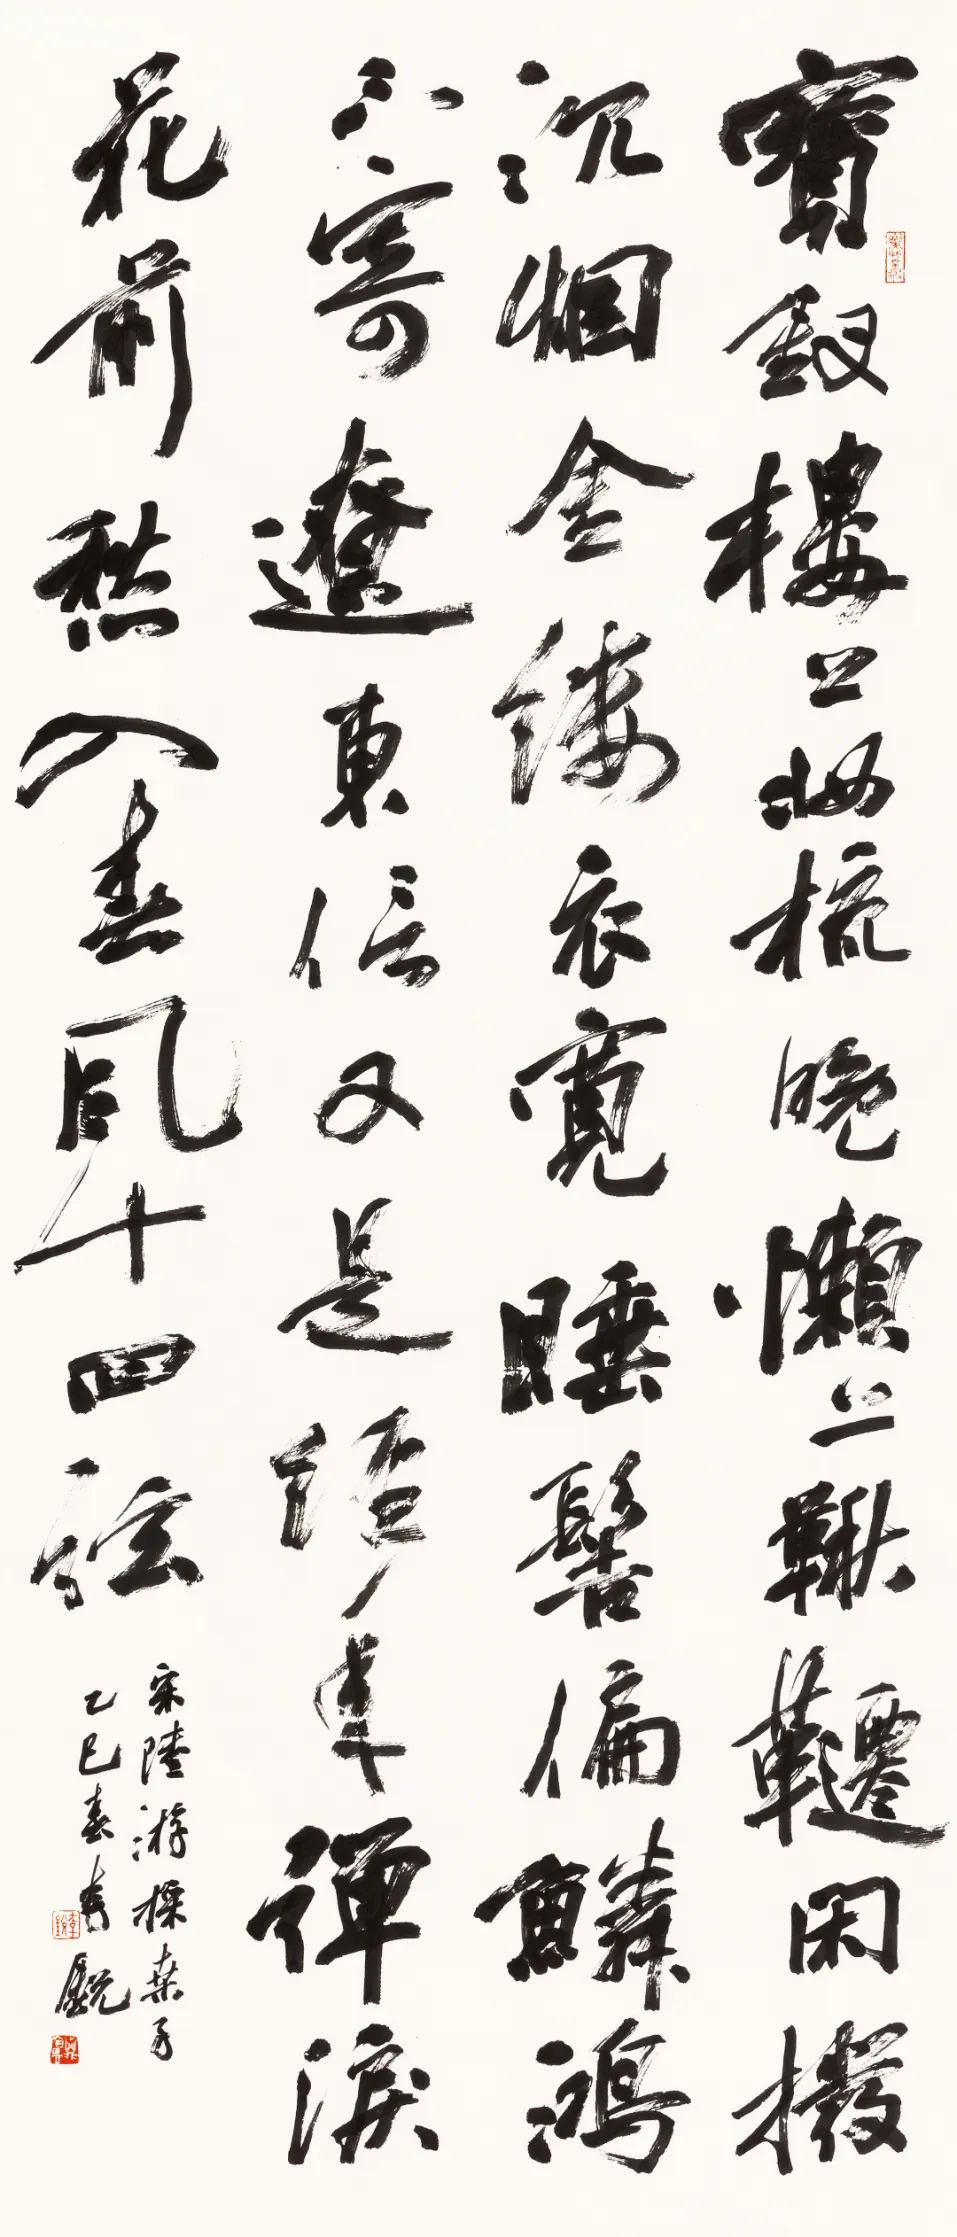 寶釵樓上妝梳晚懶上鞦韆閑撥
沉烟金縷衣寬睡髻偏鱗鴻
不寄遼東信又是經年彈淚
花前愁入春風十四弦
宋陸游採桑子
乙巳春書